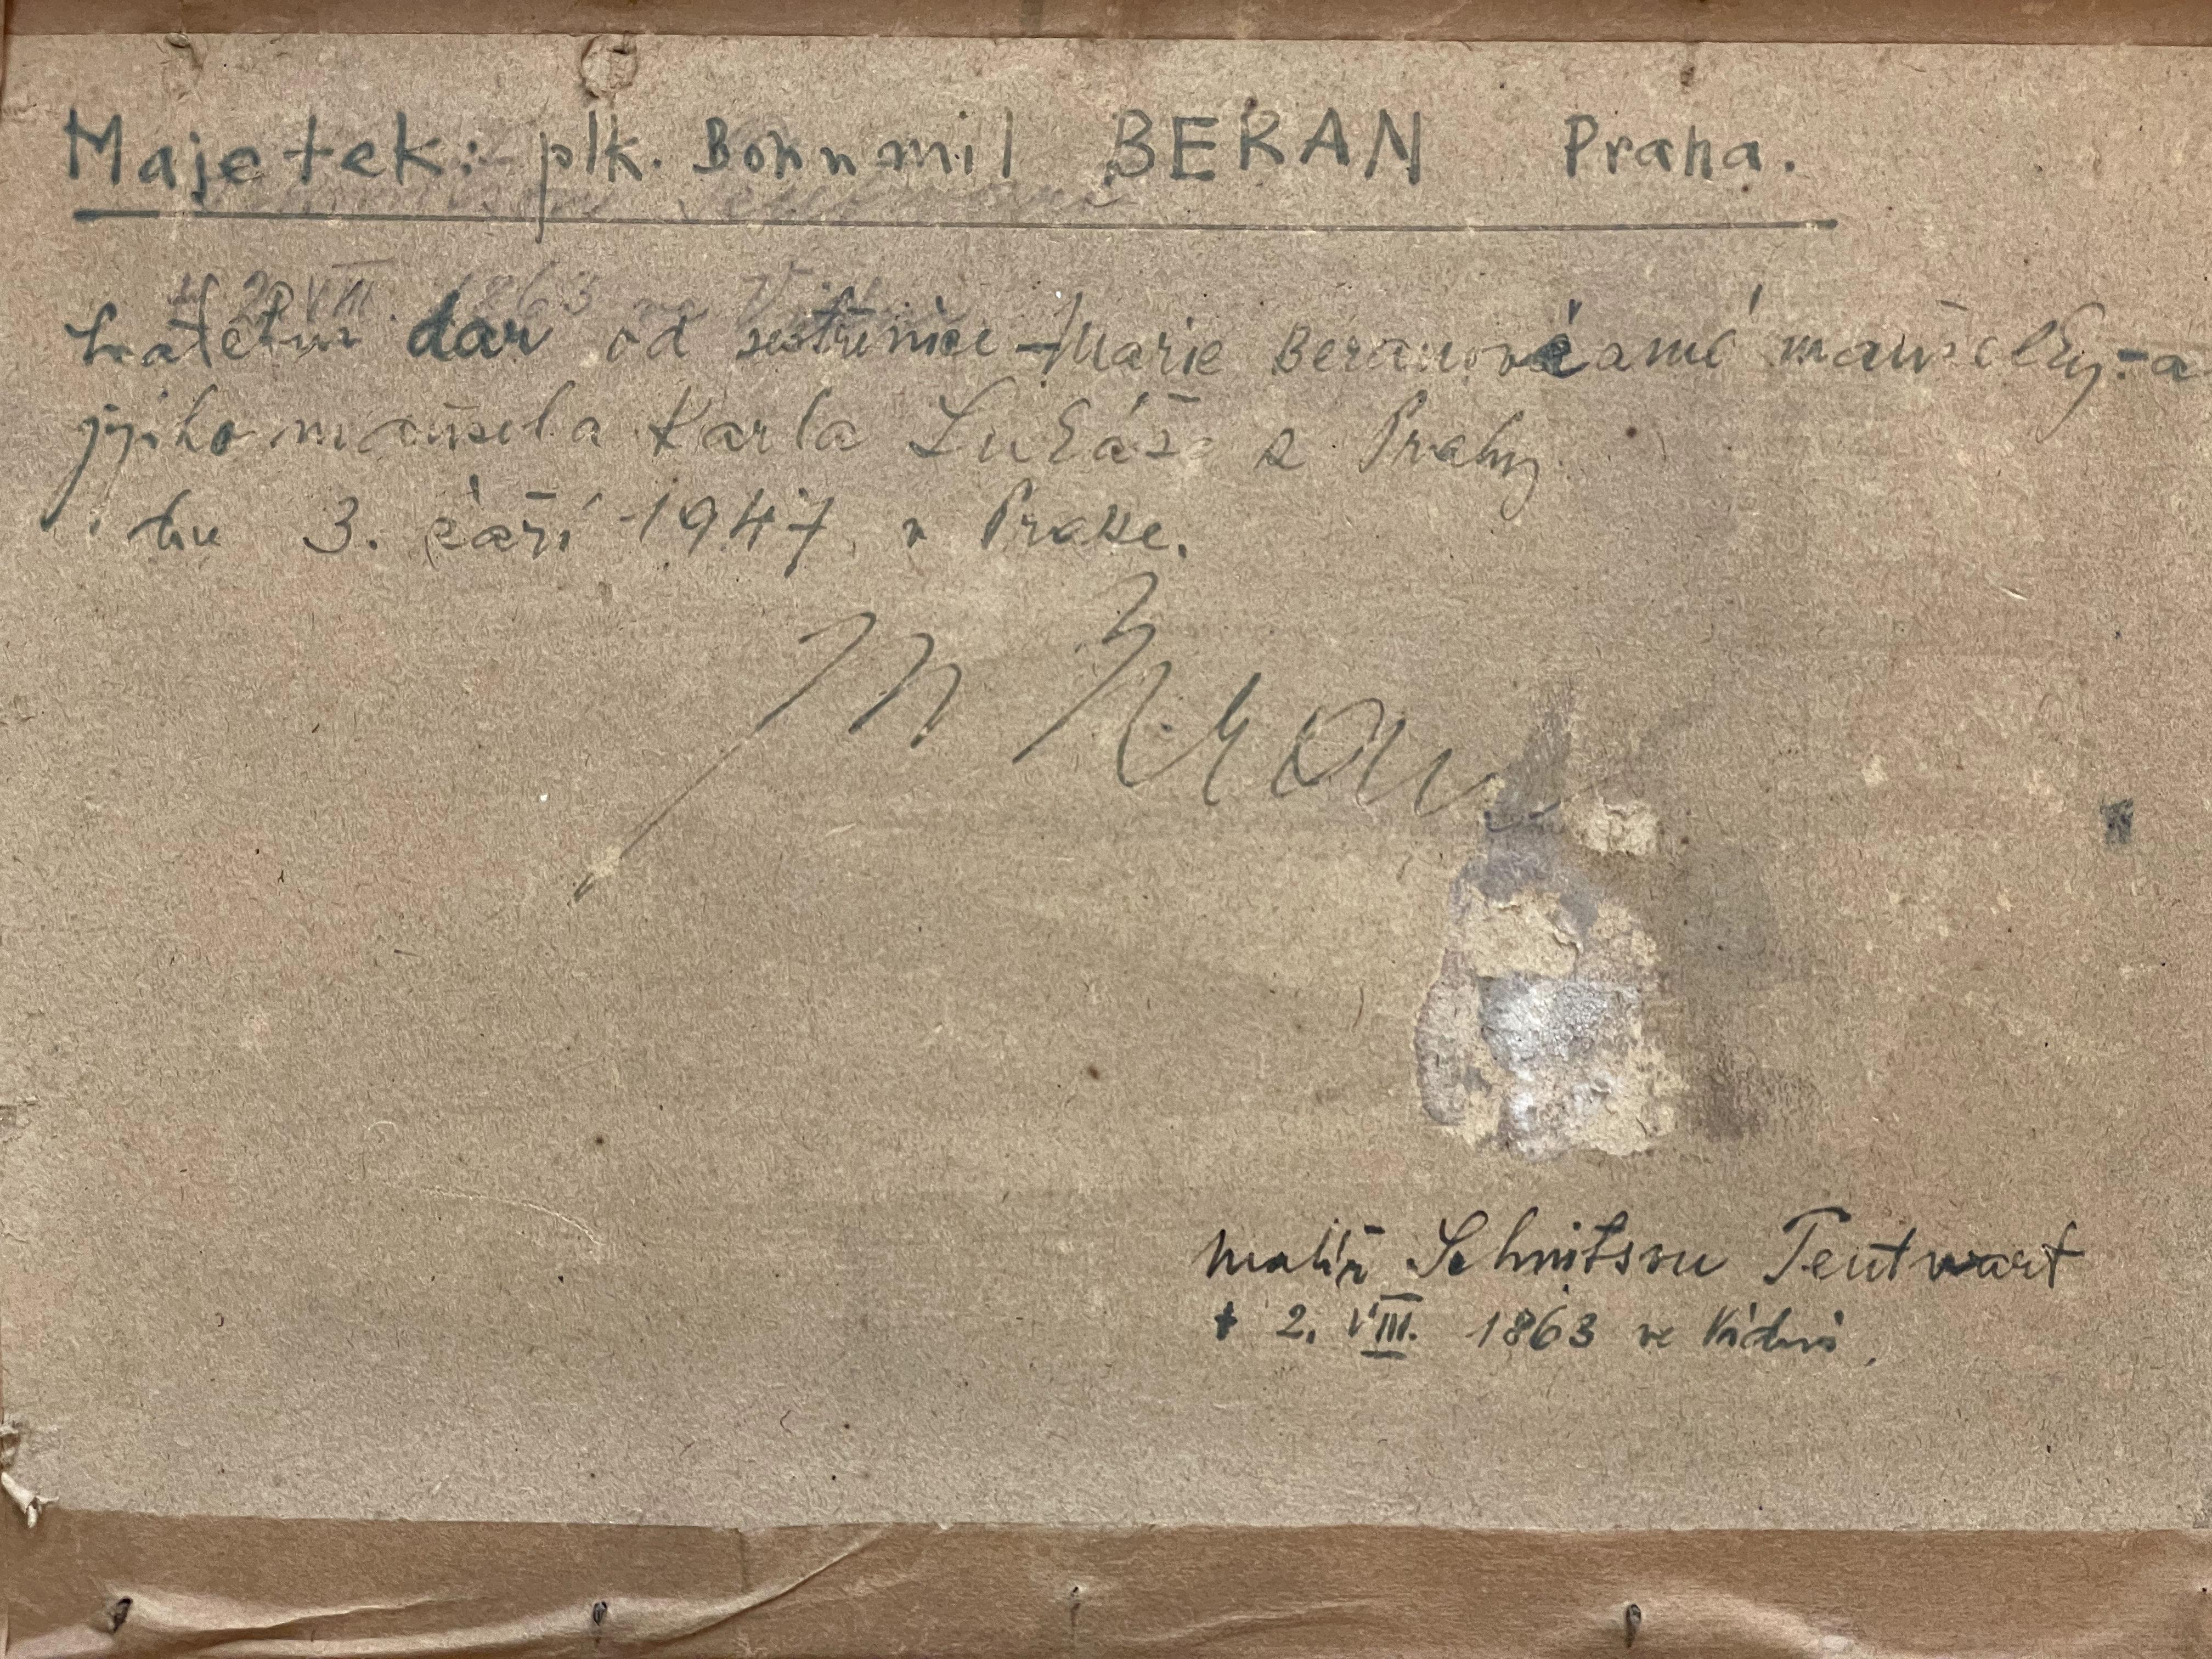 Majetek: plk. Bohumil BERAN Praha.
dar od sestřenice – Marie Beranové manželky – a
jejího manžela Karla Lukáše z Prahy
dne 3. září 1947 v Praze.
malíř Schnitssu Teutwart
* 2. VIII. 1863 ve Vídni.